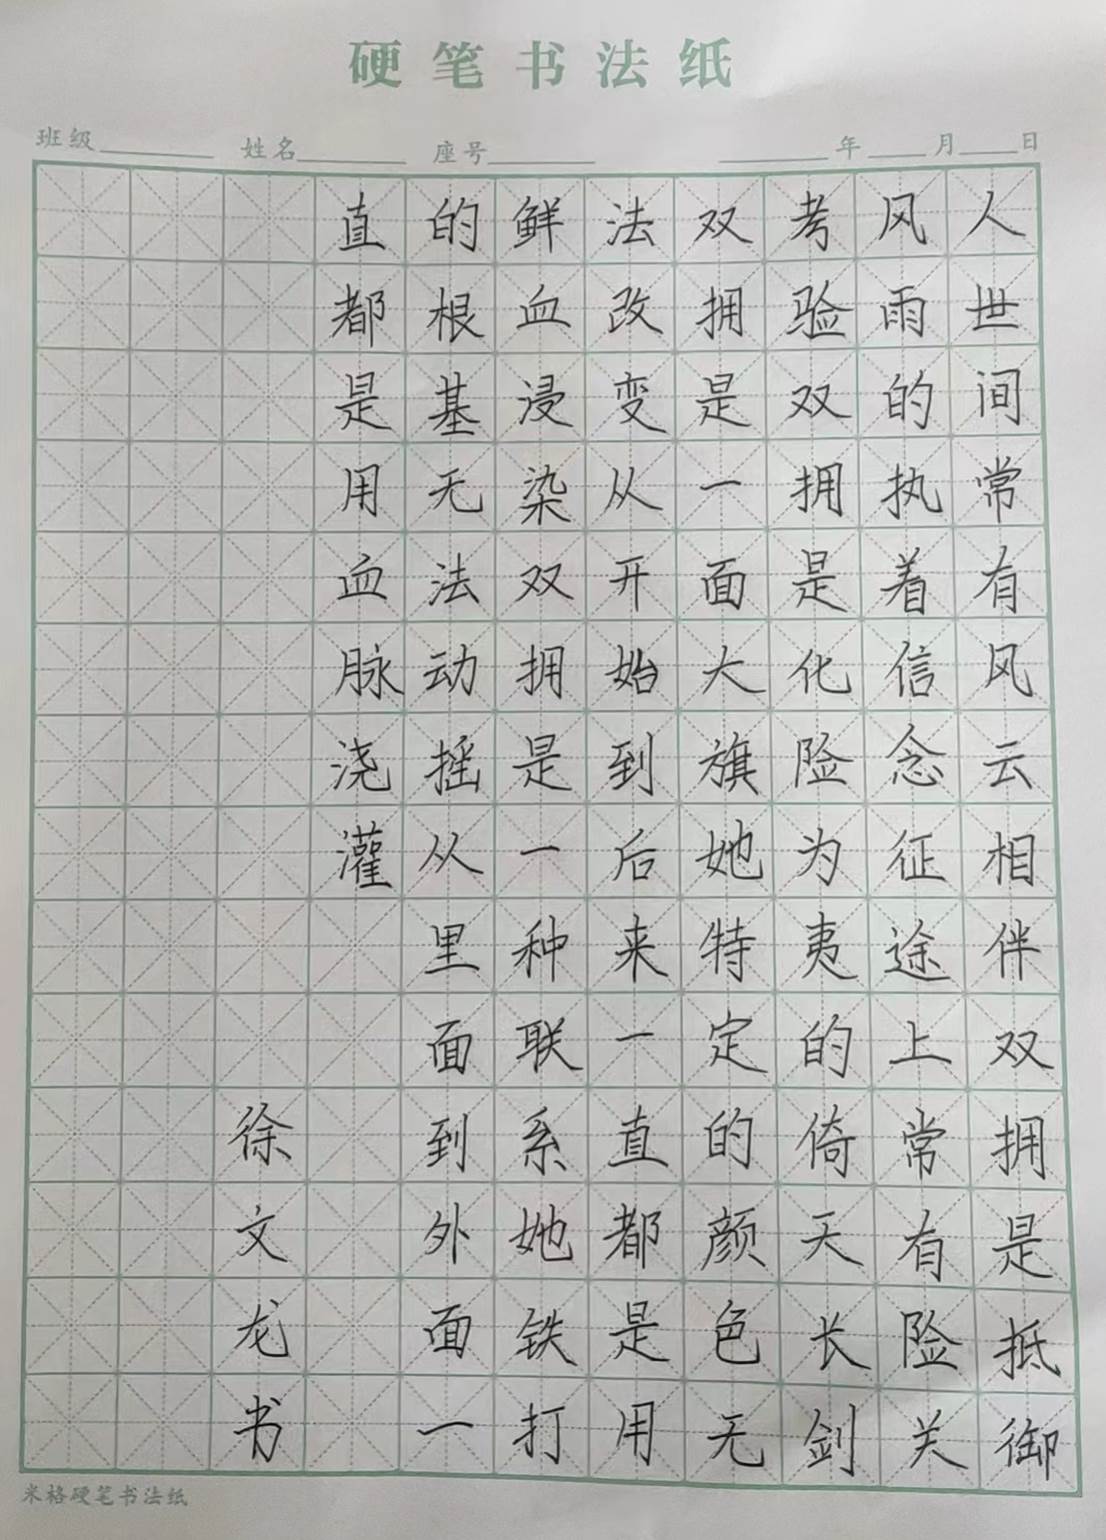 硬笔书法纸
班级 姓名 座号 年 月 日
人世间常有风云相伴双拥是抵御
风雨的执着信念征途上常有险关
考验双拥是化险为夷的倚天长剑
双拥是一面大旗她特定的颜色无
法改变从开始到后来一直都是用
鲜血浸染双拥是一种联系她铁打
的根基无法动摇从里面到外面一
直都是用血脉浇灌
徐文龙书
米格硬笔书法纸